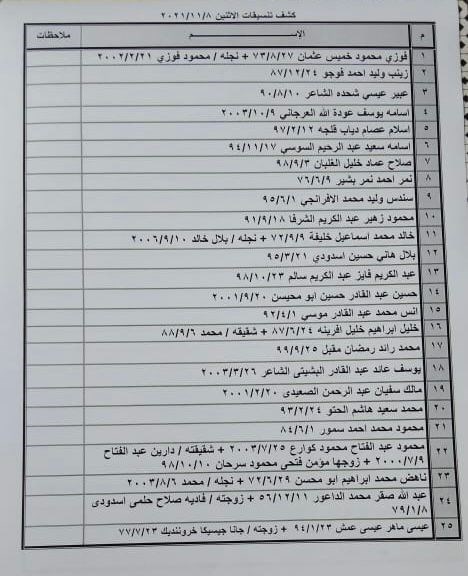 كشف تنسيقات الاثنين ٢٠٢١/١١/٨
م الاســـــــــم ملاحظات
١ فوزي محمود خميس عثمان ٧٣/٨/٢٧ + نجله / محمود فوزي ٢٠٠٢/٢/٢١
٢ زينب وليد احمد فوجو ٨٧/١٢/٢٤
٣ عبير عيسي شحده الشاعر ٩٠/٨/١٠
٤ اسامه يوسف عودة الله العرجاني ٢٠٠٣/١٠/٩
٥ اسلام عصام دياب قلجه ٩٧/٢/١٢
٦ اسامه سعيد عبد الرحيم السوسي ٩٤/١١/١٧
٧ صلاح عماد خليل الغلبان ٩٨/٩/٣
٨ نمر احمد نمر بشير ٧٦/٦/٩
٩ سندس وليد محمد الافرانجي ٩٥/٦/١
١٠ محمود زهير عبد الكريم الشرفا ٩١/٩/١٨
١١ خالد محمد اسماعيل خليفة ٧٢/٩/٩ + نجله / بلال خالد ٢٠٠٦/٩/١٠
١٢ بلال هاني حسين اسدودي ٩٥/٣/٢١
١٣ عبد الكريم فايز عبد الكريم سالم ٩٨/١٠/٢٣
١٤ حسين عبد القادر حسين ابو محيسن ٢٠٠١/٩/٢٠
١٥ انس محمد عبد القادر موسي ٩٢/٤/١
١٦ خليل ابراهيم خليل افرينه ٨٧/٦/٢٤ + شقيقه / محمد ٨٨/٩/٦
١٧ محمد رائد رمضان مقبل ٩٩/٩/٢٥
١٨ يوسف عائد عبد القادر البشيتى الشاعر ٢٠٠٣/٣/٢٦
١٩ مالك سفيان عبد الرحمن الصعيدى ٢٠٠١/٢/٢٠
٢٠ محمد سعيد هاشم الحتو ٩٣/٢/٢٤
٢١ محمود محمد احمد سمور ٨٤/٦/١
٢٢ محمود عبد الفتاح محمود كوارع ٢٠٠٣/٧/٢٥ + شقيقته / دارين عبد الفتاح
٢٠٠٠/٧/٩ + زوجها مؤمن فتحى محمود سرحان ٩٨/١٠/١٠
٢٣ ناهض محمد ابراهيم ابو محسن ٧٢/٦/٢٩ + نجله / محمد ٢٠٠٣/٨/٦
٢٤ عبد الله صقر محمد الداعور ٥٦/١٢/١١ + زوجته / فاديه صلاح حلمى اسدودى
٧٩/١/٨
٢٥ عيسى ماهر عيسى عمش ٩٤/١/٢٣ + زوجته / جانا جيسيكا خرونديك ٧٧/٧/٢٣